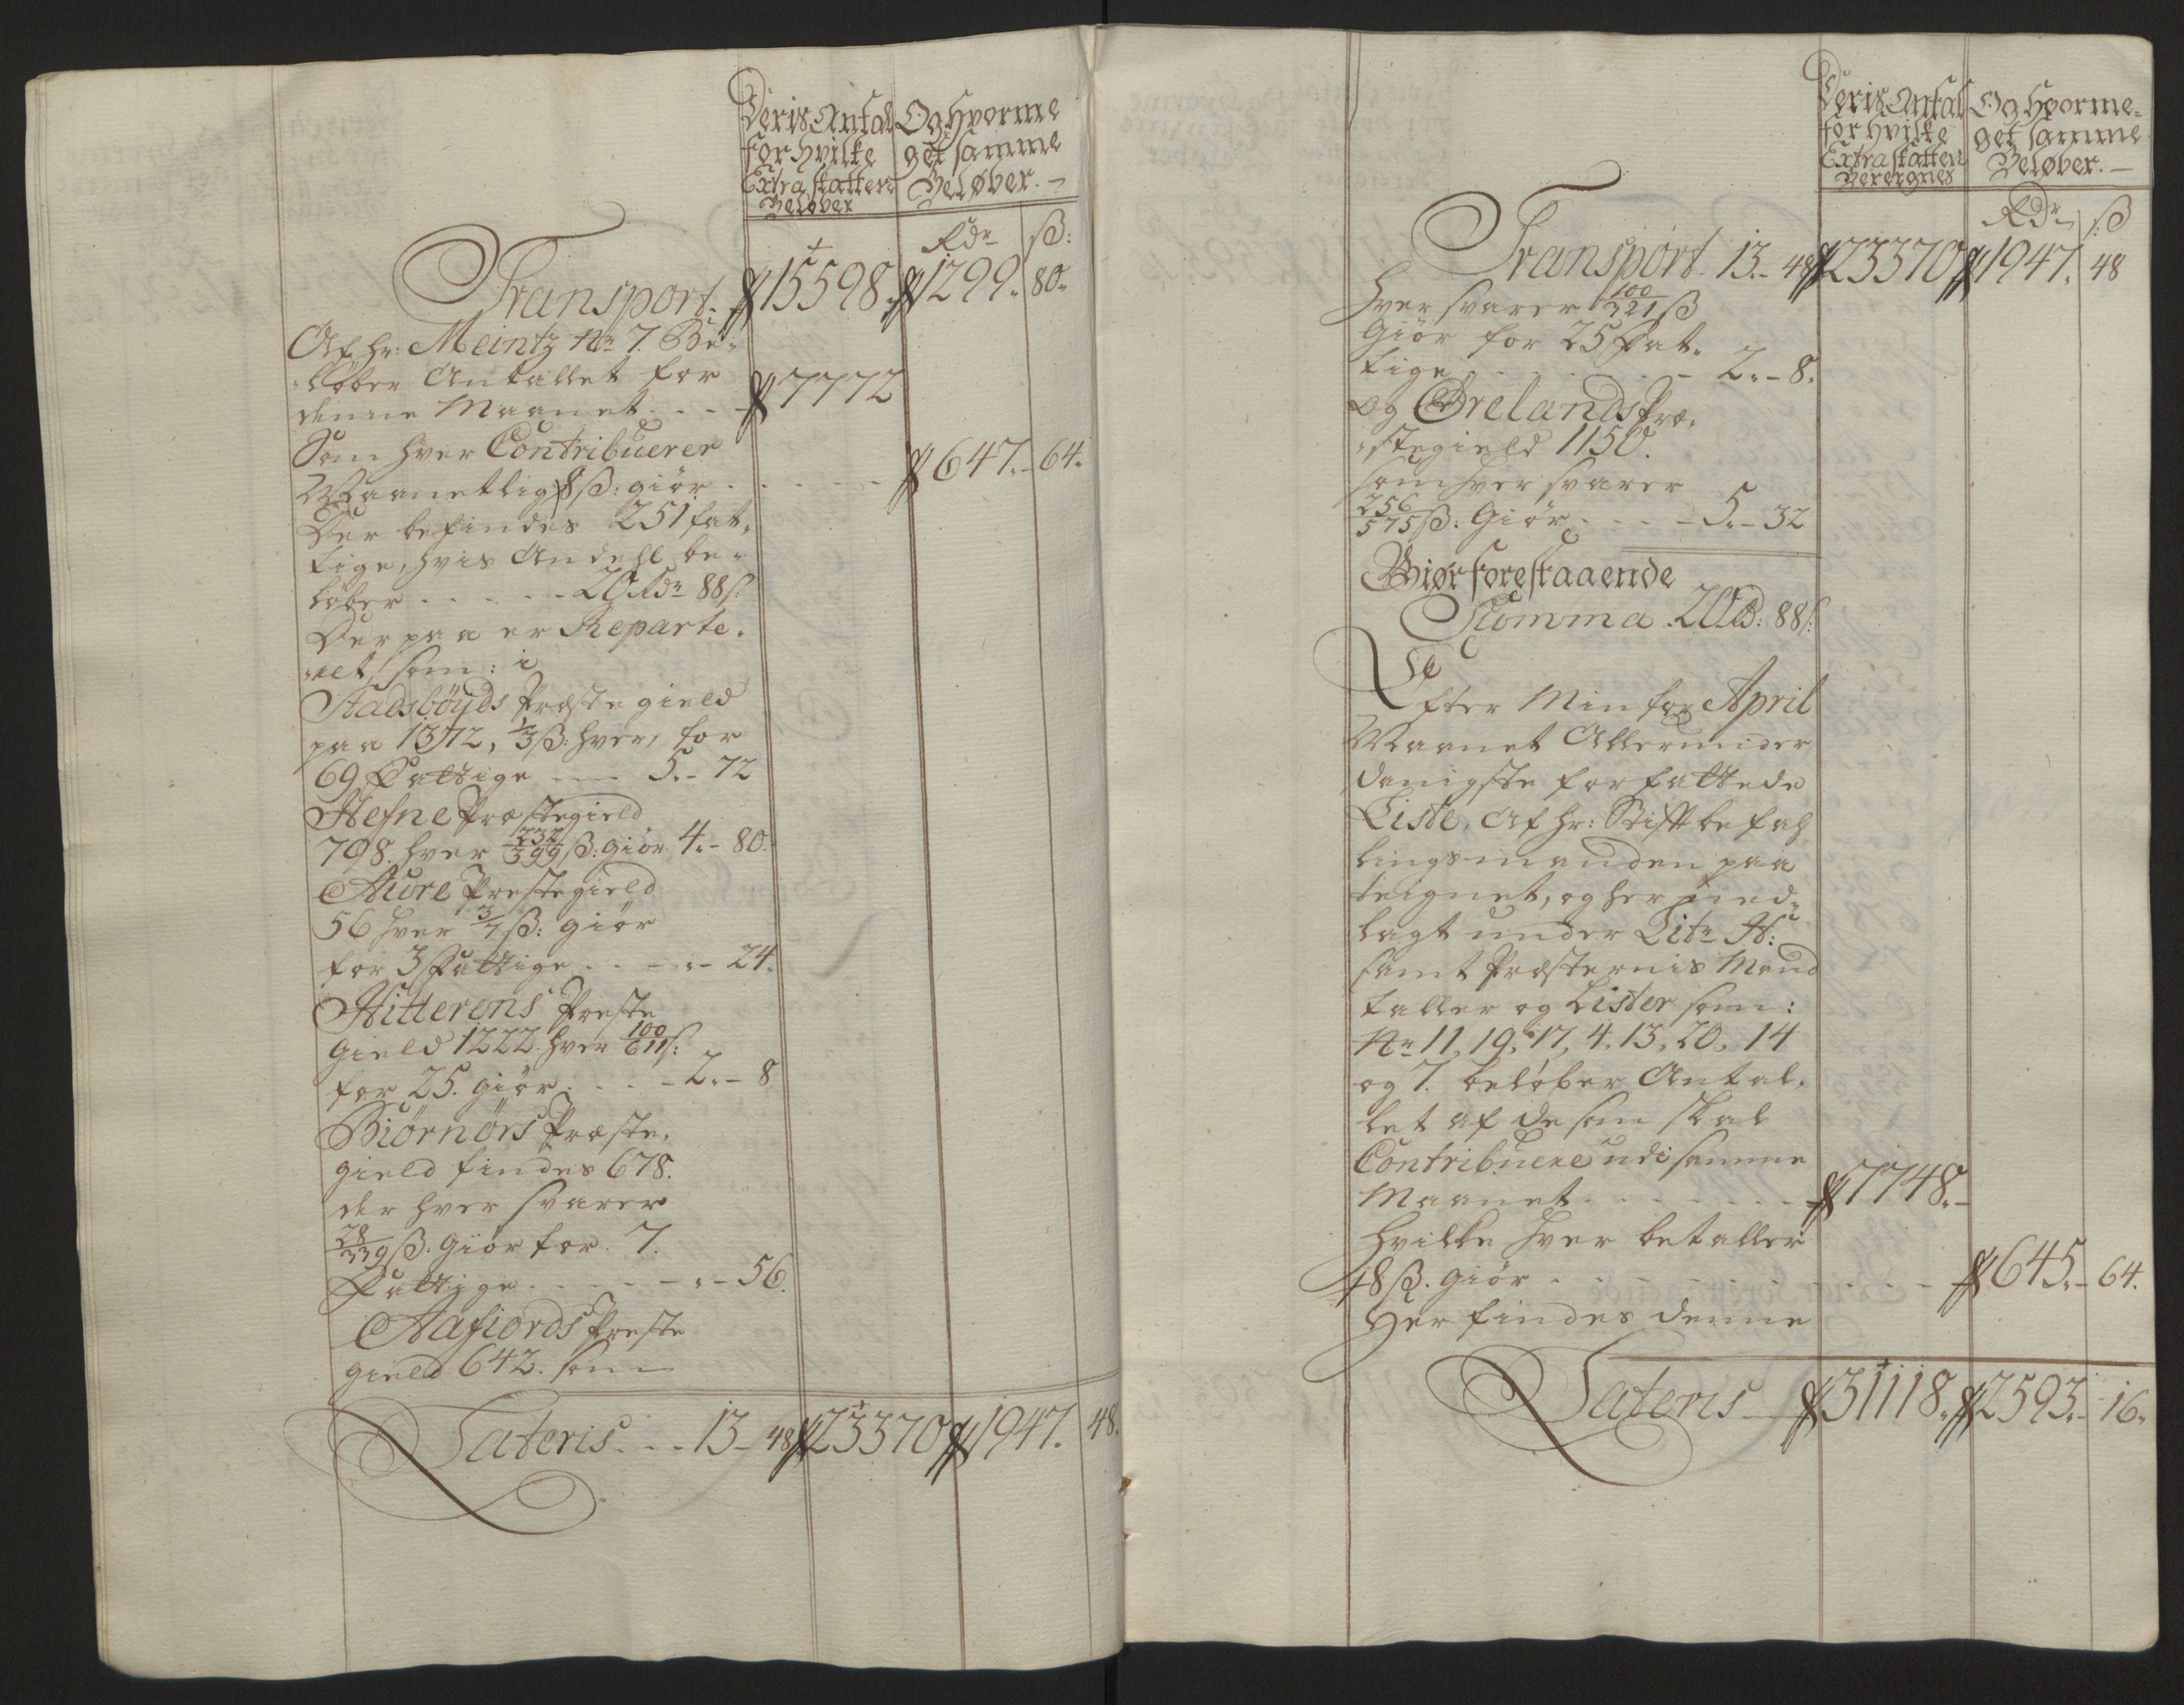 Deris Antal
for hvilke
Extraskatten
Beløber
Og Hvorme
get samme
Beløber.
Rdr ß:
Transport. 15598. 1299. 80.
Af hr: Meintz No 7. Be-
løber Antallet for
denne Maanet . . . 7772
Som hver Contribuerer
Maanetlig 8 ß: giör . . . . 647. 64.
Der befindes 251 fat-
tige, hvis Andehl be-
löber . . . . . 20 Rdr 88 ß:
Der paa er Reparte-
ret, som: i
Stadsböyds Præstegield
paa 1372, 1/3 ß: hver, for
69 Fattige 5.- 72
Hefne Præstegield
798. hver 232/399 ß: giör 4.- 80.
Aure Præstegield
56 hver 3/7 ß: giör
for 3 Fattige . . - . - 24.
Hitterens Preste
gield 1222. hver 100/611 ß:
for 25. giör . . . - 2. - 8
Biörnörs Præste-
gield findes 678.
der hver svarer
28/339 ß: Giör for 7.
Fattige . . . . - - . - 56.
Aafiords Preste
gield 642. som
Lateris . . . 13 - 48 23370 1947. 48.
Deris Antal
for hvilke
Extraskatten
Beregnes
Og Hvorme-
get samme
Beløber.
Rdr ß
Transport. 13.- 48 23370 1947. 48
hver svarer 100/321 ß
Giör for 25 Fat-
tige . . . . . . - 2.- 8.
og Örelands Præ-
stegield 1150.
som hver svarer
256/575 ß: Giör . . . - 5.- 32
Giør forestaaende
Summa . 20 Rd: 88 ß:
Efter Min for April
Maanet Allerunder
danigste forfattede
Liste, Af hr: Stiftbefah
lingsmanden paa
teignet, og her ined-
lagt under Litr H:
samt Præsternis Mand
taller og Lister som:
No 11, 19, 17, 4, 13, 20, 14
og 7. beløber Antal-
let af de som skal
Contribuere udi samme
Maanet . . . . . . . . 7748.
Hvilke hver betaller
8 ß. giör . . . . . . . . . . 645. 64.
Her findes denne
Lateris 31118. 2593. 16.